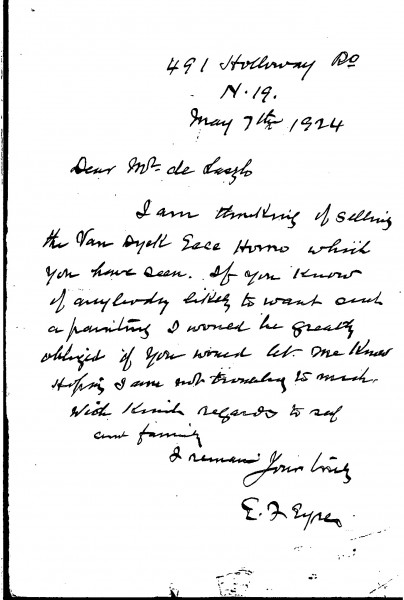 491 Holloway Rd
N.19.
May 7th 1924
Dear Mr de Laszlo
I am thinking of selling
the Van Dyck Ecce Homo which
you have seen. If you know
of anybody likely to want such
a painting I would be greatly
obliged if you would let me know
Hoping I am not troubling to much.
With kind regards to self
and family
I remain Yours truly
E. F. Eyre